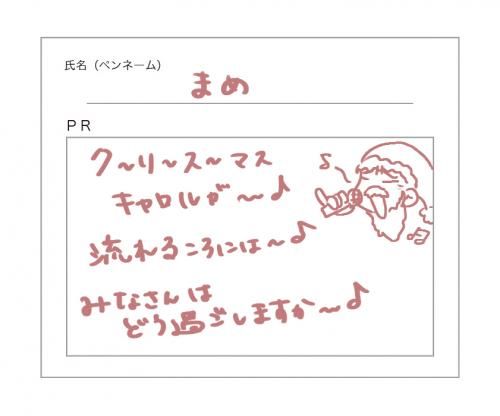 氏名（ペンネーム）
まめ
PR
ク～リ～ス～マス
キャロルが～♪
流れるころには～♪
みなさんは
どう過ごしますか～♪